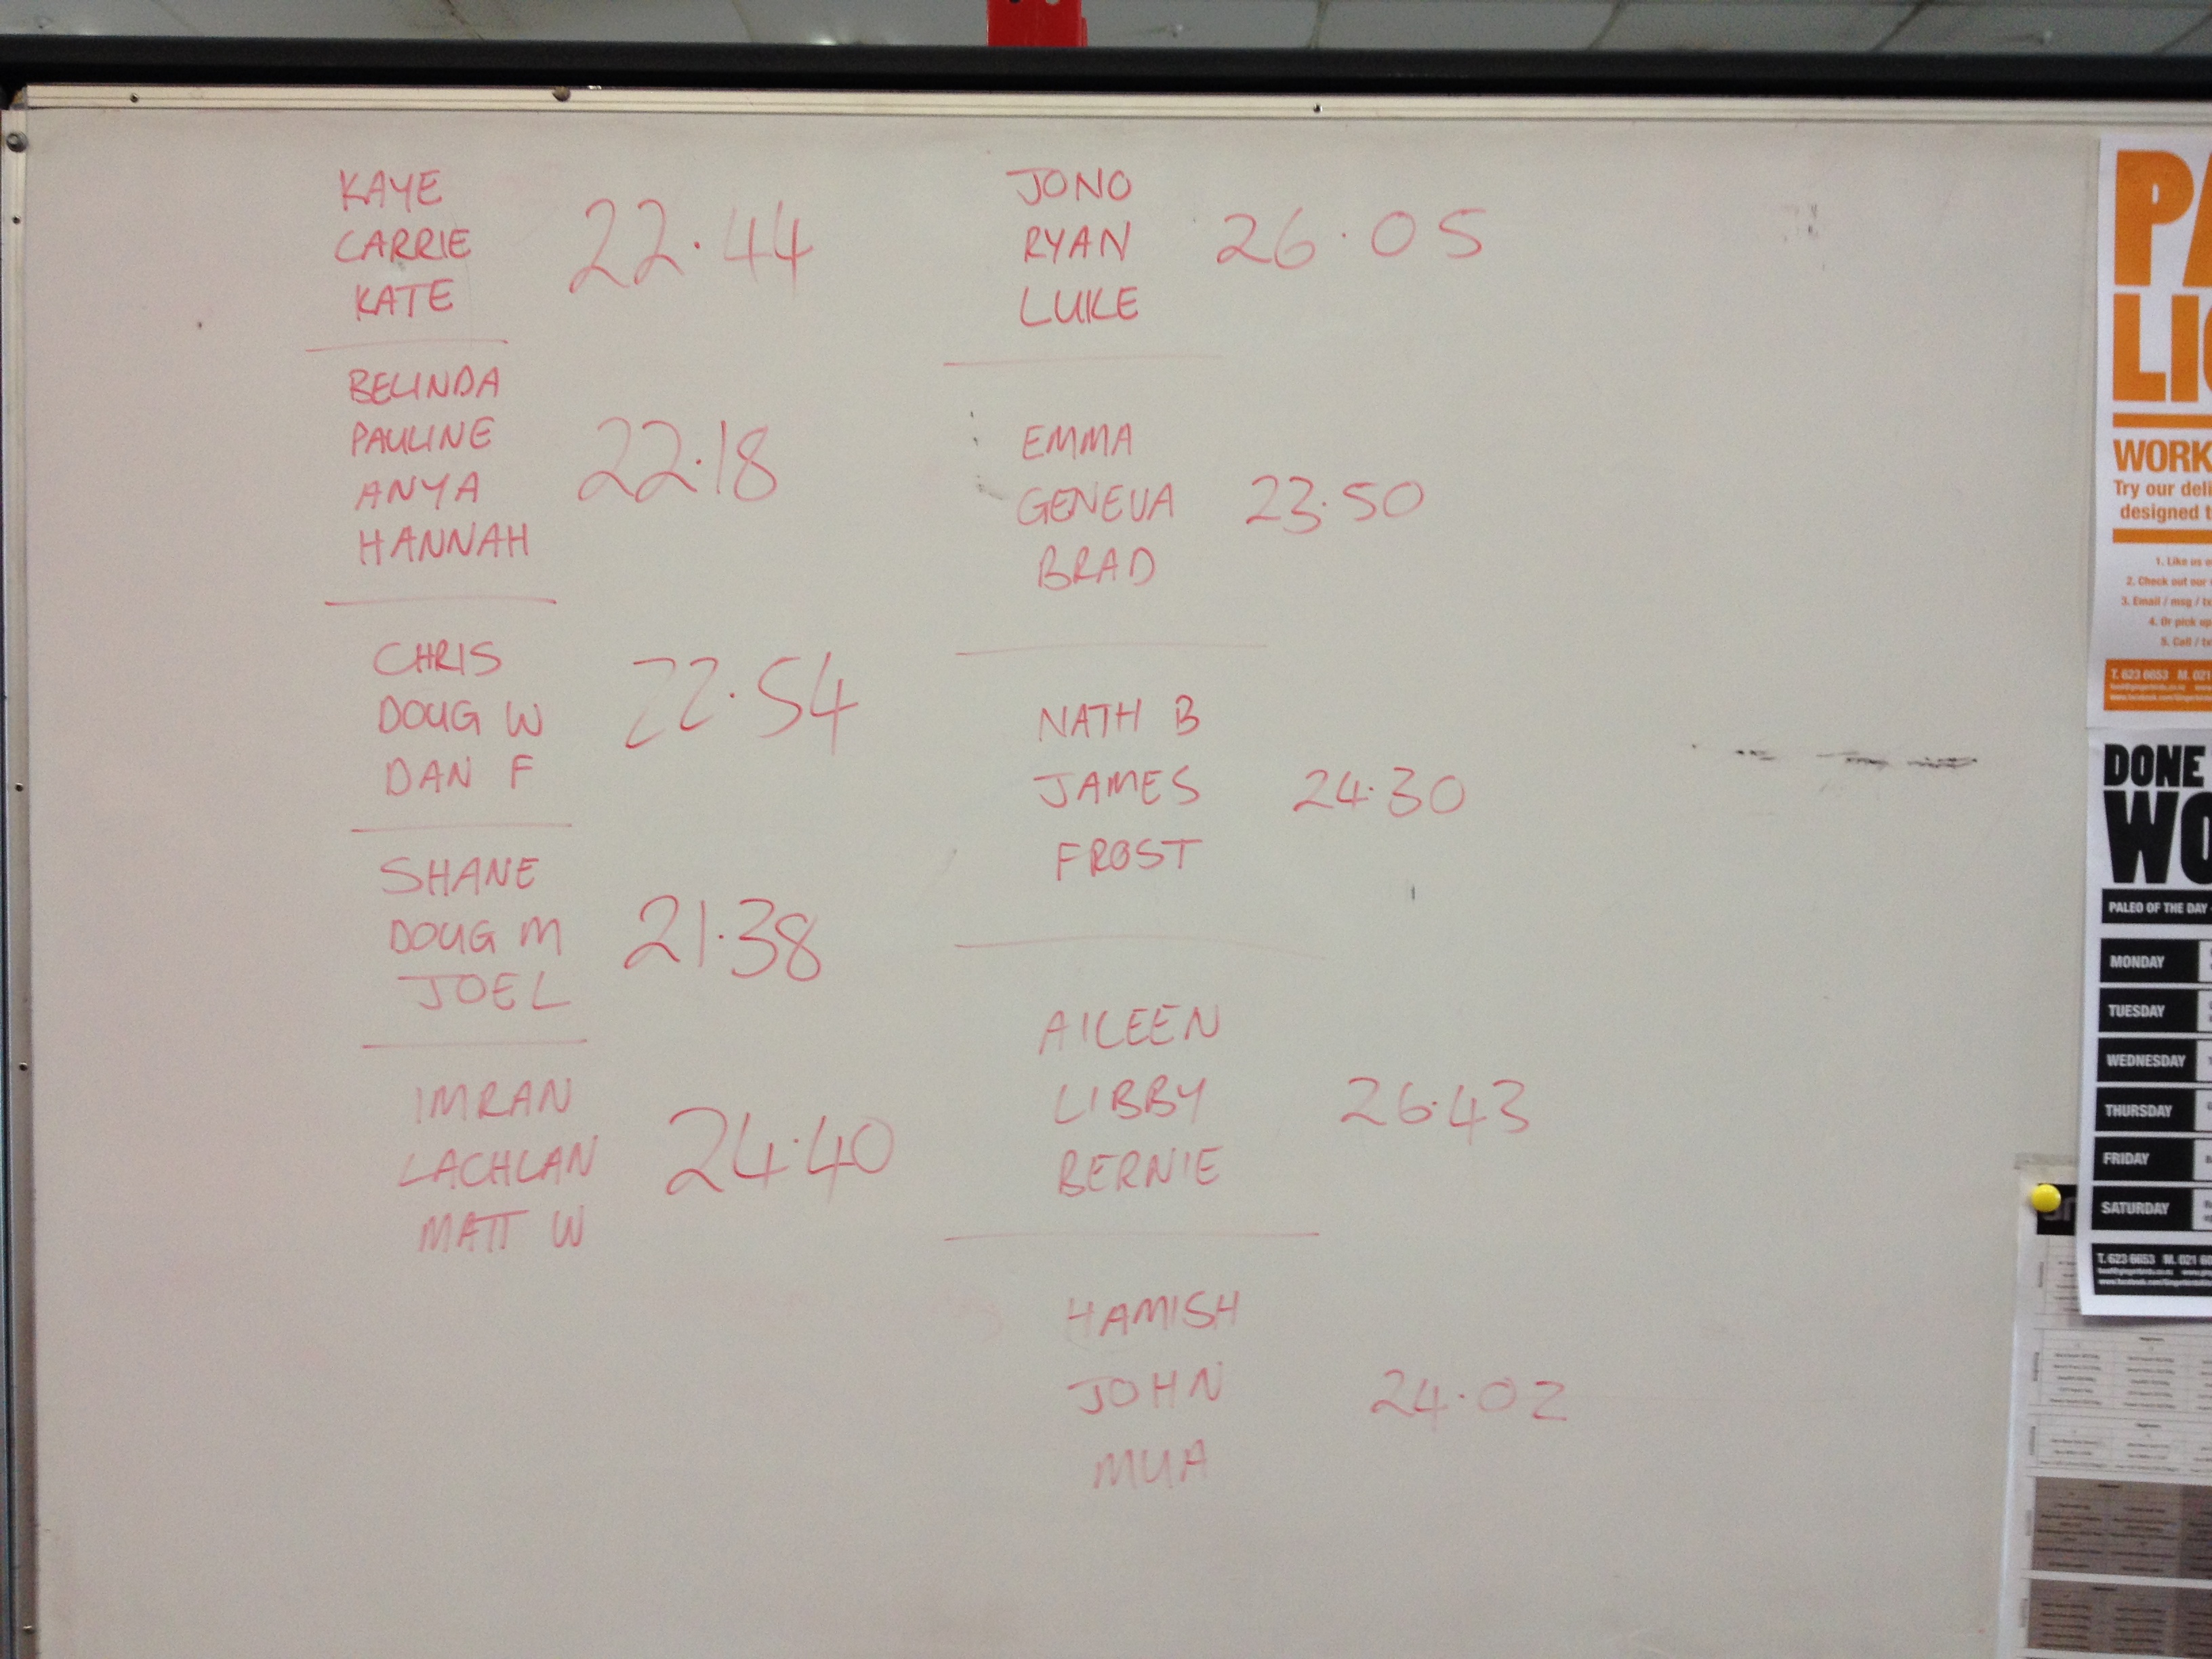 KAYE
CARRIE
KATE
22.44
BELINDA
PAULINE
ANYA
HANNAH
22.18
CHRIS
DOUG W
DAN F
22.54
SHANE
DOUG M
JOEL
21.38
IMRAN
LACHLAN
MATT W
24.40
JONO
RYAN
LUKE
26.05
EMMA
GENEVA
BRAD
23.50
NATH B
JAMES
FROST
24.30
AILEEN
LIBBY
BERNIE
26.43
HAMISH
JOHN
MUA
24.02
WORK
Try our deli
designed t
1. Like us
2. Check out our
3. Email / msg /
4. Or pick up
5. Call /
T. 623 6653 M. 021
DONE
WO
PALEO OF THE DAY
MONDAY
TUESDAY
WEDNESDAY
THURSDAY
FRIDAY
SATURDAY
T. 623 6653 M. 021